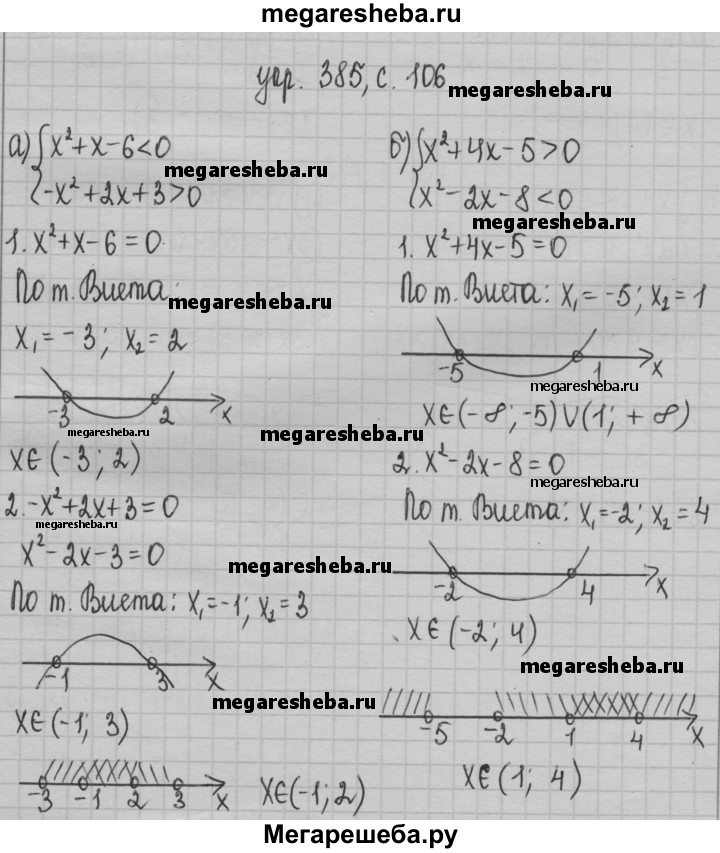 megaresheba.ru
упр. 385, с. 106
megaresheba.ru
а) { x²+x-6<0
-x²+2x+3>0
megaresheba.ru
1. x²+x-6=0
По т. Виета:
megaresheba.ru
x₁=-3; x₂=2
-3 2 x
megaresheba.ru
x∈(-3; 2)
2. -x²+2x+3=0
megaresheba.ru
x²-2x-3=0
По т. Виета: x₁=-1; x₂=3
-1 3 x
x∈(-1; 3)
-3 -1 2 3 x
x∈(-1; 2)
б) { x²+4x-5>0
x²-2x-8<0
megaresheba.ru
1. x²+4x-5=0
По т. Виета: x₁=-5; x₂=1
-5 1 x
megaresheba.ru
x∈(-∞; -5)∪(1; +∞)
megaresheba.ru
2. x²-2x-8=0
megaresheba.ru
По т. Виета: x₁=-2; x₂=4
megaresheba.ru
-2 4 x
x∈(-2; 4)
megaresheba.ru
megaresheba.ru
-5 -2 1 4 x
x∈(1; 4)
Мегарешеба.ру